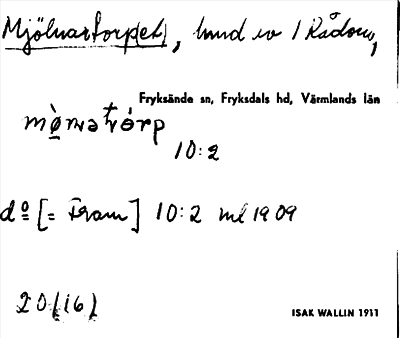 Mjölnartorp(et), hmd ev 1 Rådom,
Fryksände sn, Fryksdals hd, Värmlands län
10:2
do [= Fram] 10:2 ml 1909
20(16)
ISAK WALLIN 1911